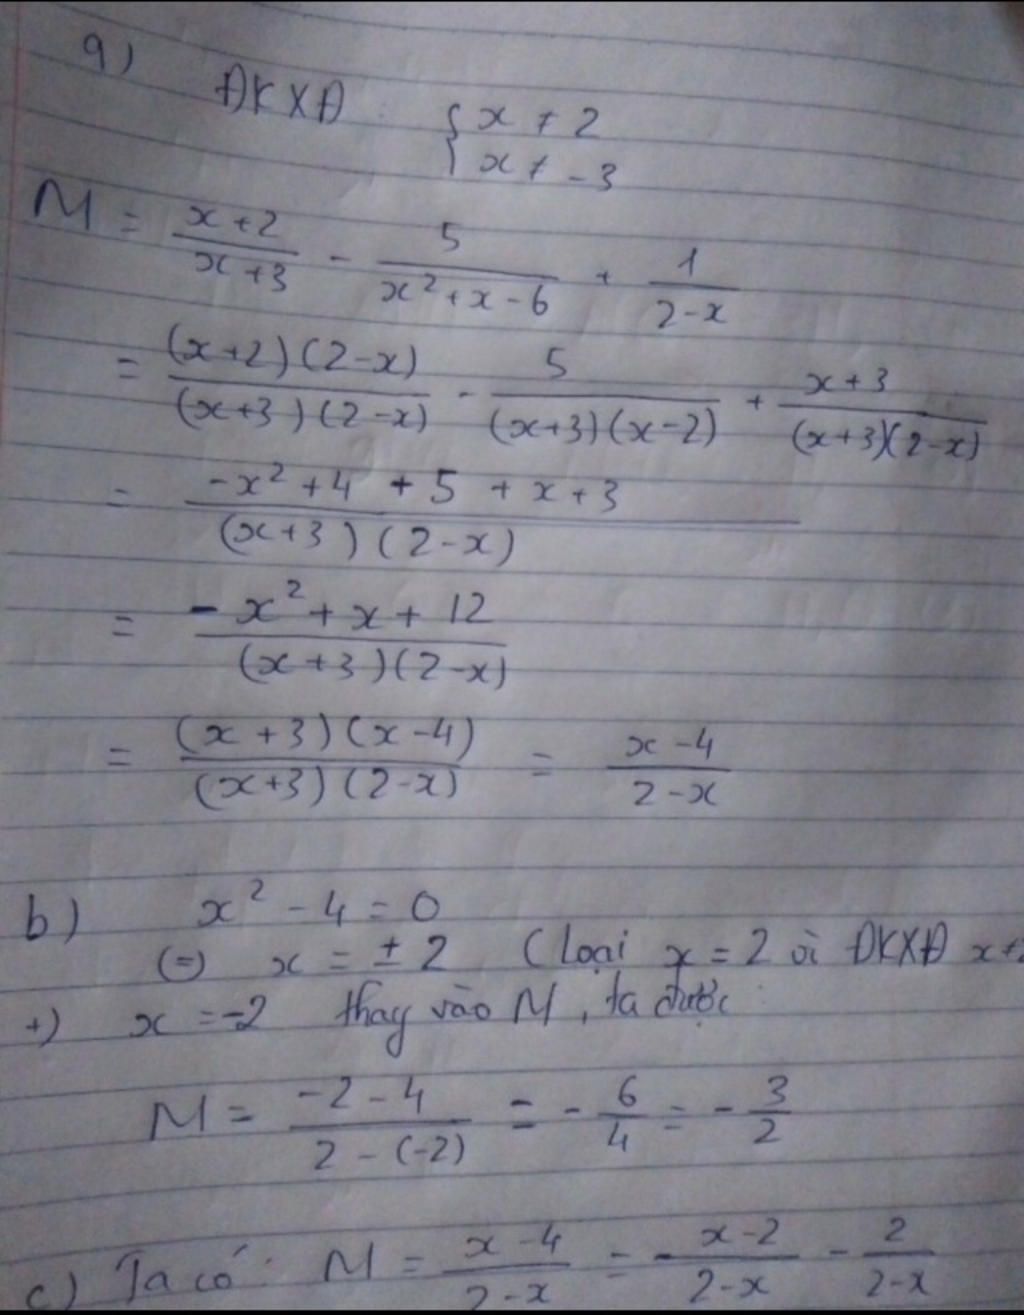 a)
ĐKXĐ : { x ≠ 2
{ x ≠ -3
M = (x+2)/(x+3) - 5/(x² + x - 6) + 1/(2-x)
= (x+2)(2-x)/(x+3)(2-x) - 5/(x+3)(x-2) + (x+3)/(x+3)(2-x)
= (-x² + 4 + 5 + x + 3)/(x+3)(2-x)
= (-x² + x + 12)/(x+3)(2-x)
= (x+3)(x-4)/(x+3)(2-x) = (x-4)/(2-x)
b) x² - 4 = 0
(=) x = ± 2 (loại x = 2 vì ĐKXĐ x≠2
+) x = -2 thay vào M, ta được :
M = (-2-4)/(2-(-2)) = - 6/4 = - 3/2
c) Ta có : M = (x-4)/(2-x) = - (x-2)/(2-x) - 2/(2-x)